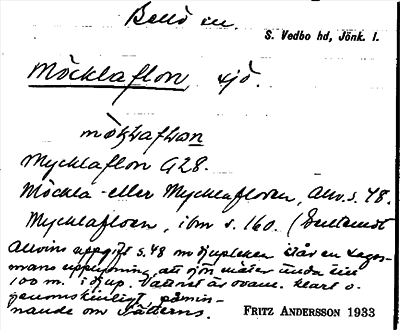 Bellö sn.
S. Vedbo hd, Jönk. l.
Möcklaflon, sjö.
Mycklaflon G28.
Möckla- eller Mycklafloen, Allv. s. 48.
Mycklafloen, ibm s. 160. (
Allvins uppgift s. 48 m djupleken står en
mans uppmätning, att sjön mäter ända till
100 m. i djup. Vattnet är ovanl. klart o.
genomskinligt, påmin-
nande om Vätterns.
FRITZ ANDERSSON 1933